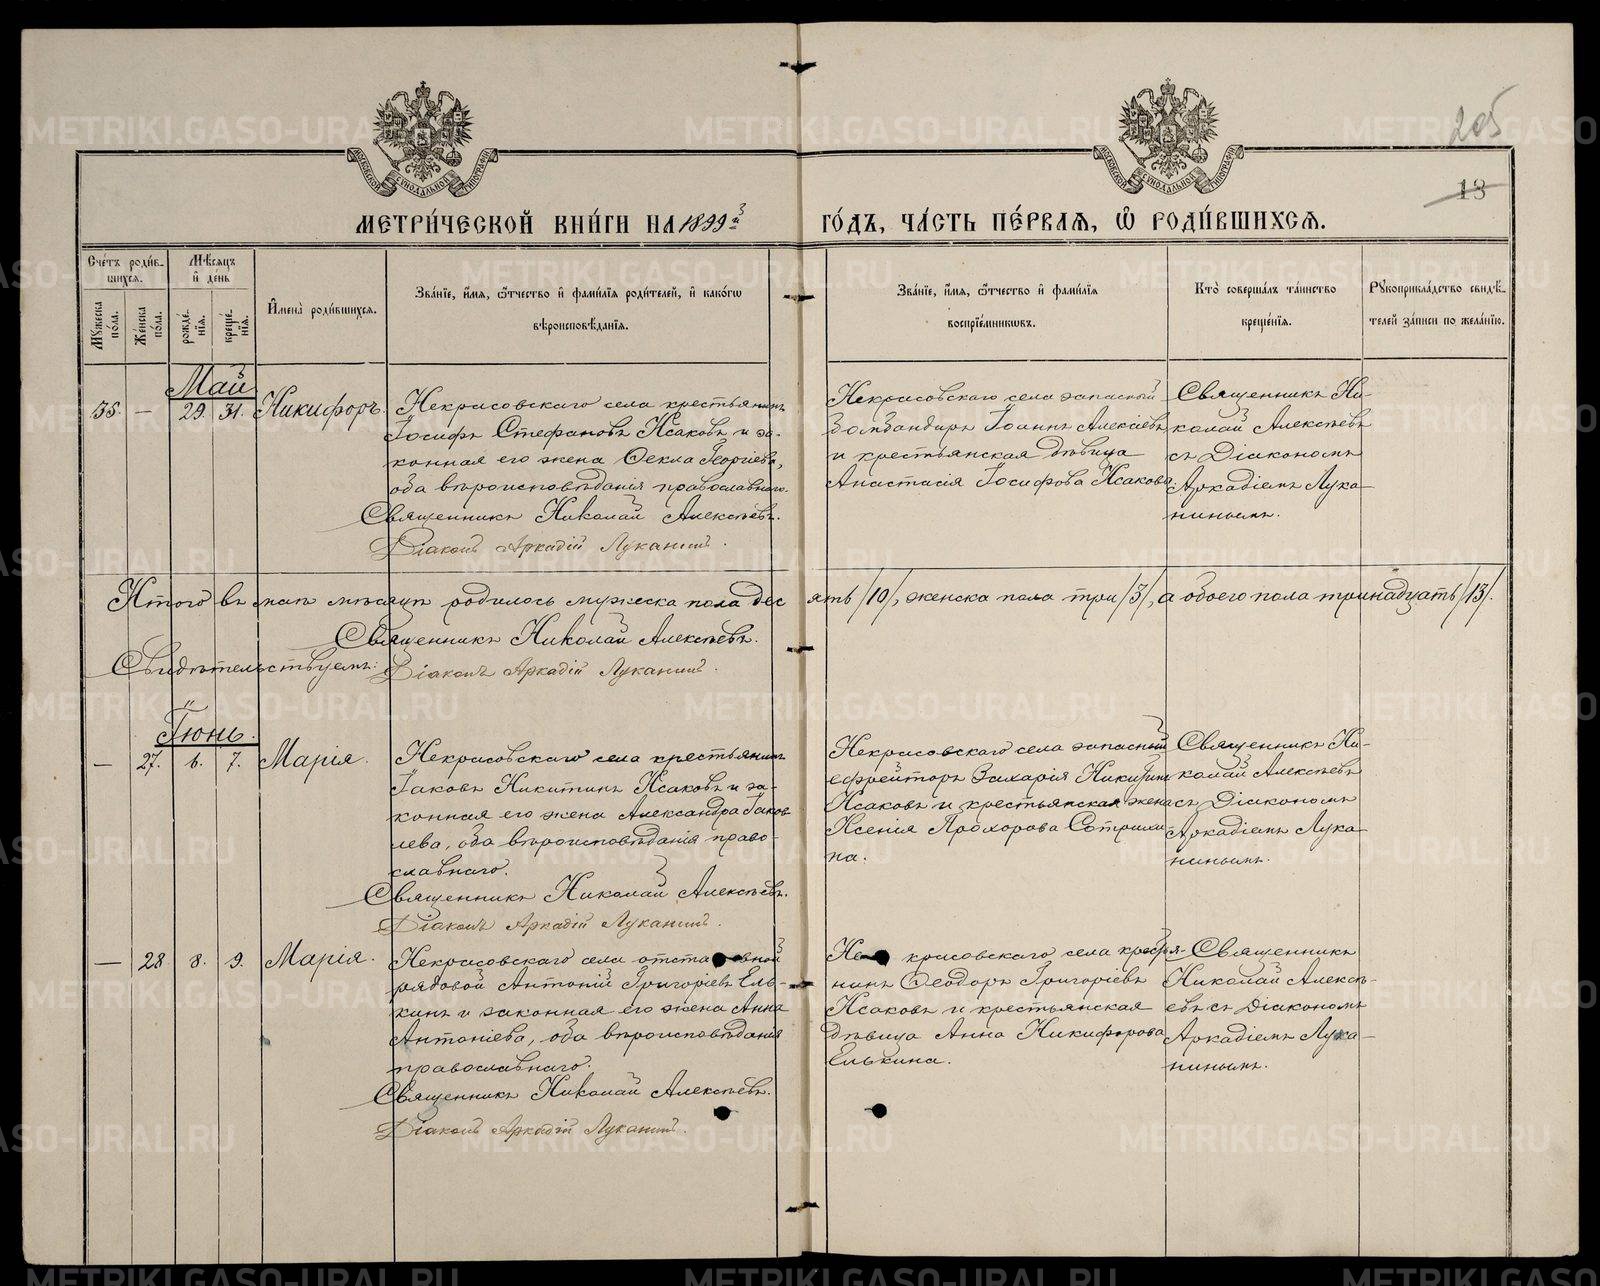 205
13
МЕТРИЧЕСКОЙ КНИГИ НА 1899й ГОДЪ, ЧАСТЬ ПЕРВАЯ, Ѡ РОДИВШИХСЯ.
Счетъ родив-
шихся.
Мѣсяцъ
и день
Мужеска
пола.
Женска
пола.
рожде-
нія.
креще-
нія.
Имена родившихся.
Званіе, имя, ѿчество и фамилія родителей, и какогѡ
вѣроисповѣданія.
Званіе, имя, ѿчество и фамилія
воспріемниковъ.
Кто совершалъ таинство
крещенія.
Рукоприкладство свидѣ-
телей записи по желанію.
Май
35. — 29. 31. Никифоръ.
Некрасовскаго села крестьянинъ
Іосифъ Стефановъ Исаковъ и за-
конная его жена Ѳекла Георгіева,
оба вѣроисповѣданія православнаго.
Священникъ Николай Алексѣевъ.
Діаконъ Аркадій Луканинъ.
Некрасовскаго села запасный
бомбандиръ Іоаннъ Алексіевъ
и крестьянская дѣвица
Анастасія Іосифова Исакова
Священникъ Ни-
колай Алексѣевъ
съ Діакономъ
Аркадіемъ Лука-
нинымъ.
Итого въ маѣ мѣсяцѣ родилось мужеска пола десять /10/, женска пола три /3/, а обоего пола тринадцать /13/.
Священникъ Николай Алексѣевъ.
Свидѣтельствуемъ: Діаконъ Аркадій Луканинъ.
Іюнь.
— 27. 6. 7. Марія.
Некрасовскаго села крестьянинъ
Іаковъ Никитинъ Исаковъ и за-
конная его жена Александра Іаков-
лева, оба вѣроисповѣданія право-
славнаго.
Священникъ Николай Алексѣевъ.
Діаконъ Аркадій Луканинъ.
Некрасовскаго села запасный
ефрейторъ Захарія Никитинъ
Исаковъ и крестьянская жена
Ксенія Прохорова Сотрихи-
на.
Священникъ Ни-
колай Алексѣевъ
съ Діакономъ
Аркадіемъ Лука-
нинымъ.
— 28 8. 9. Марія.
Некрасовскаго села отставной
рядовой Антоній Григоріевъ Ель-
кинъ и законная его жена Анна
Антоніева, оба вѣроисповѣданія
православнаго.
Священникъ Николай Алексѣевъ.
Діаконъ Аркадій Луканинъ.
Некрасовскаго села крестья-
нинъ Ѳеодоръ Григоріевъ
Исаковъ и крестьянская
дѣвица Анна Никифорова
Елькина.
Священникъ
Николай Алексѣ-
евъ съ Діакономъ
Аркадіемъ Лука-
нинымъ.
METRIKI.GASO-URAL.RU